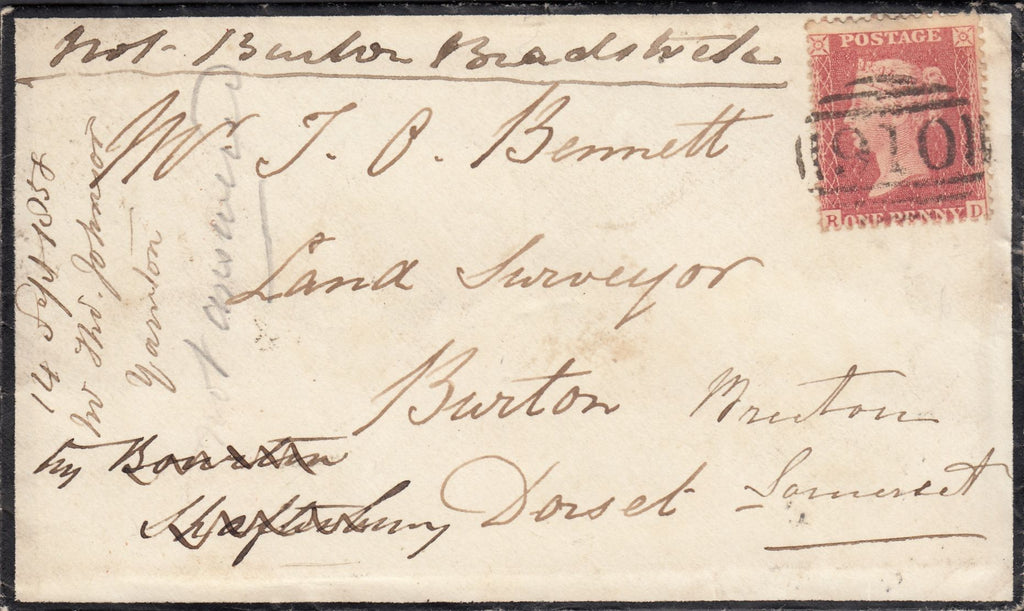 Not Burton Bradstock
POSTAGE
Mr T. O. Bennett
910
R ONE PENNY D
Land Surveyor
Burton Bruton
Dorset Somerset
try Bourton
Shaftesbury
14 Sept 1858
Mr Thos. Johnson
Yarnton
not answered